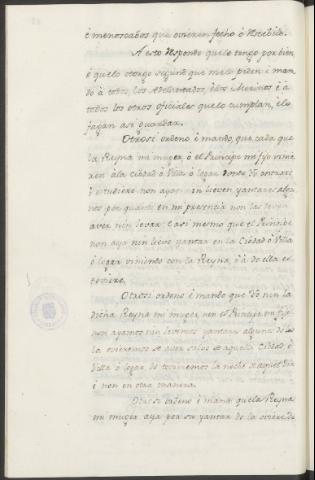 é menoscabos que ovieren fecho ó Rescibido.
A esto Respondo que lo tengo por bien
é que lo otorgo segund que me lo piden é man
do à todos los Adelantados, é los Merinos é à
todos los otros oficiales que lo cumplan, é lo
fagan asi guardar.
Otrosi ordeno é mando, que cada que
la Reyna mi muger, ó el Principe mi fijo vinie
ren à la Ciudad ó Villa ó logar donde Yo entrare
é estudiere non ayan nin lieven yantares algu
nos por quanto en mi presencia non las deven
aver nin levar. E asi mesmo que el Principe
non aya nin lieve yantar en la Ciudad ó Villa
ó logar viniendo con la Reyna, é à do ella es
toviere.
Otrosi ordeno é mando que Yo nin la
dicha Reyna mi muger nin el Principe mi fijo
non ayamos nin levemos yantar alguno do
la ovieremos de aver salvo de aquella Ciudad, ó
Villa ó logar do tovieremos la noche de aquel dia
é non en otra manera.
Otrosi ordeno é mando que la Reyna
mi muger aya por su yantar do la oviere de